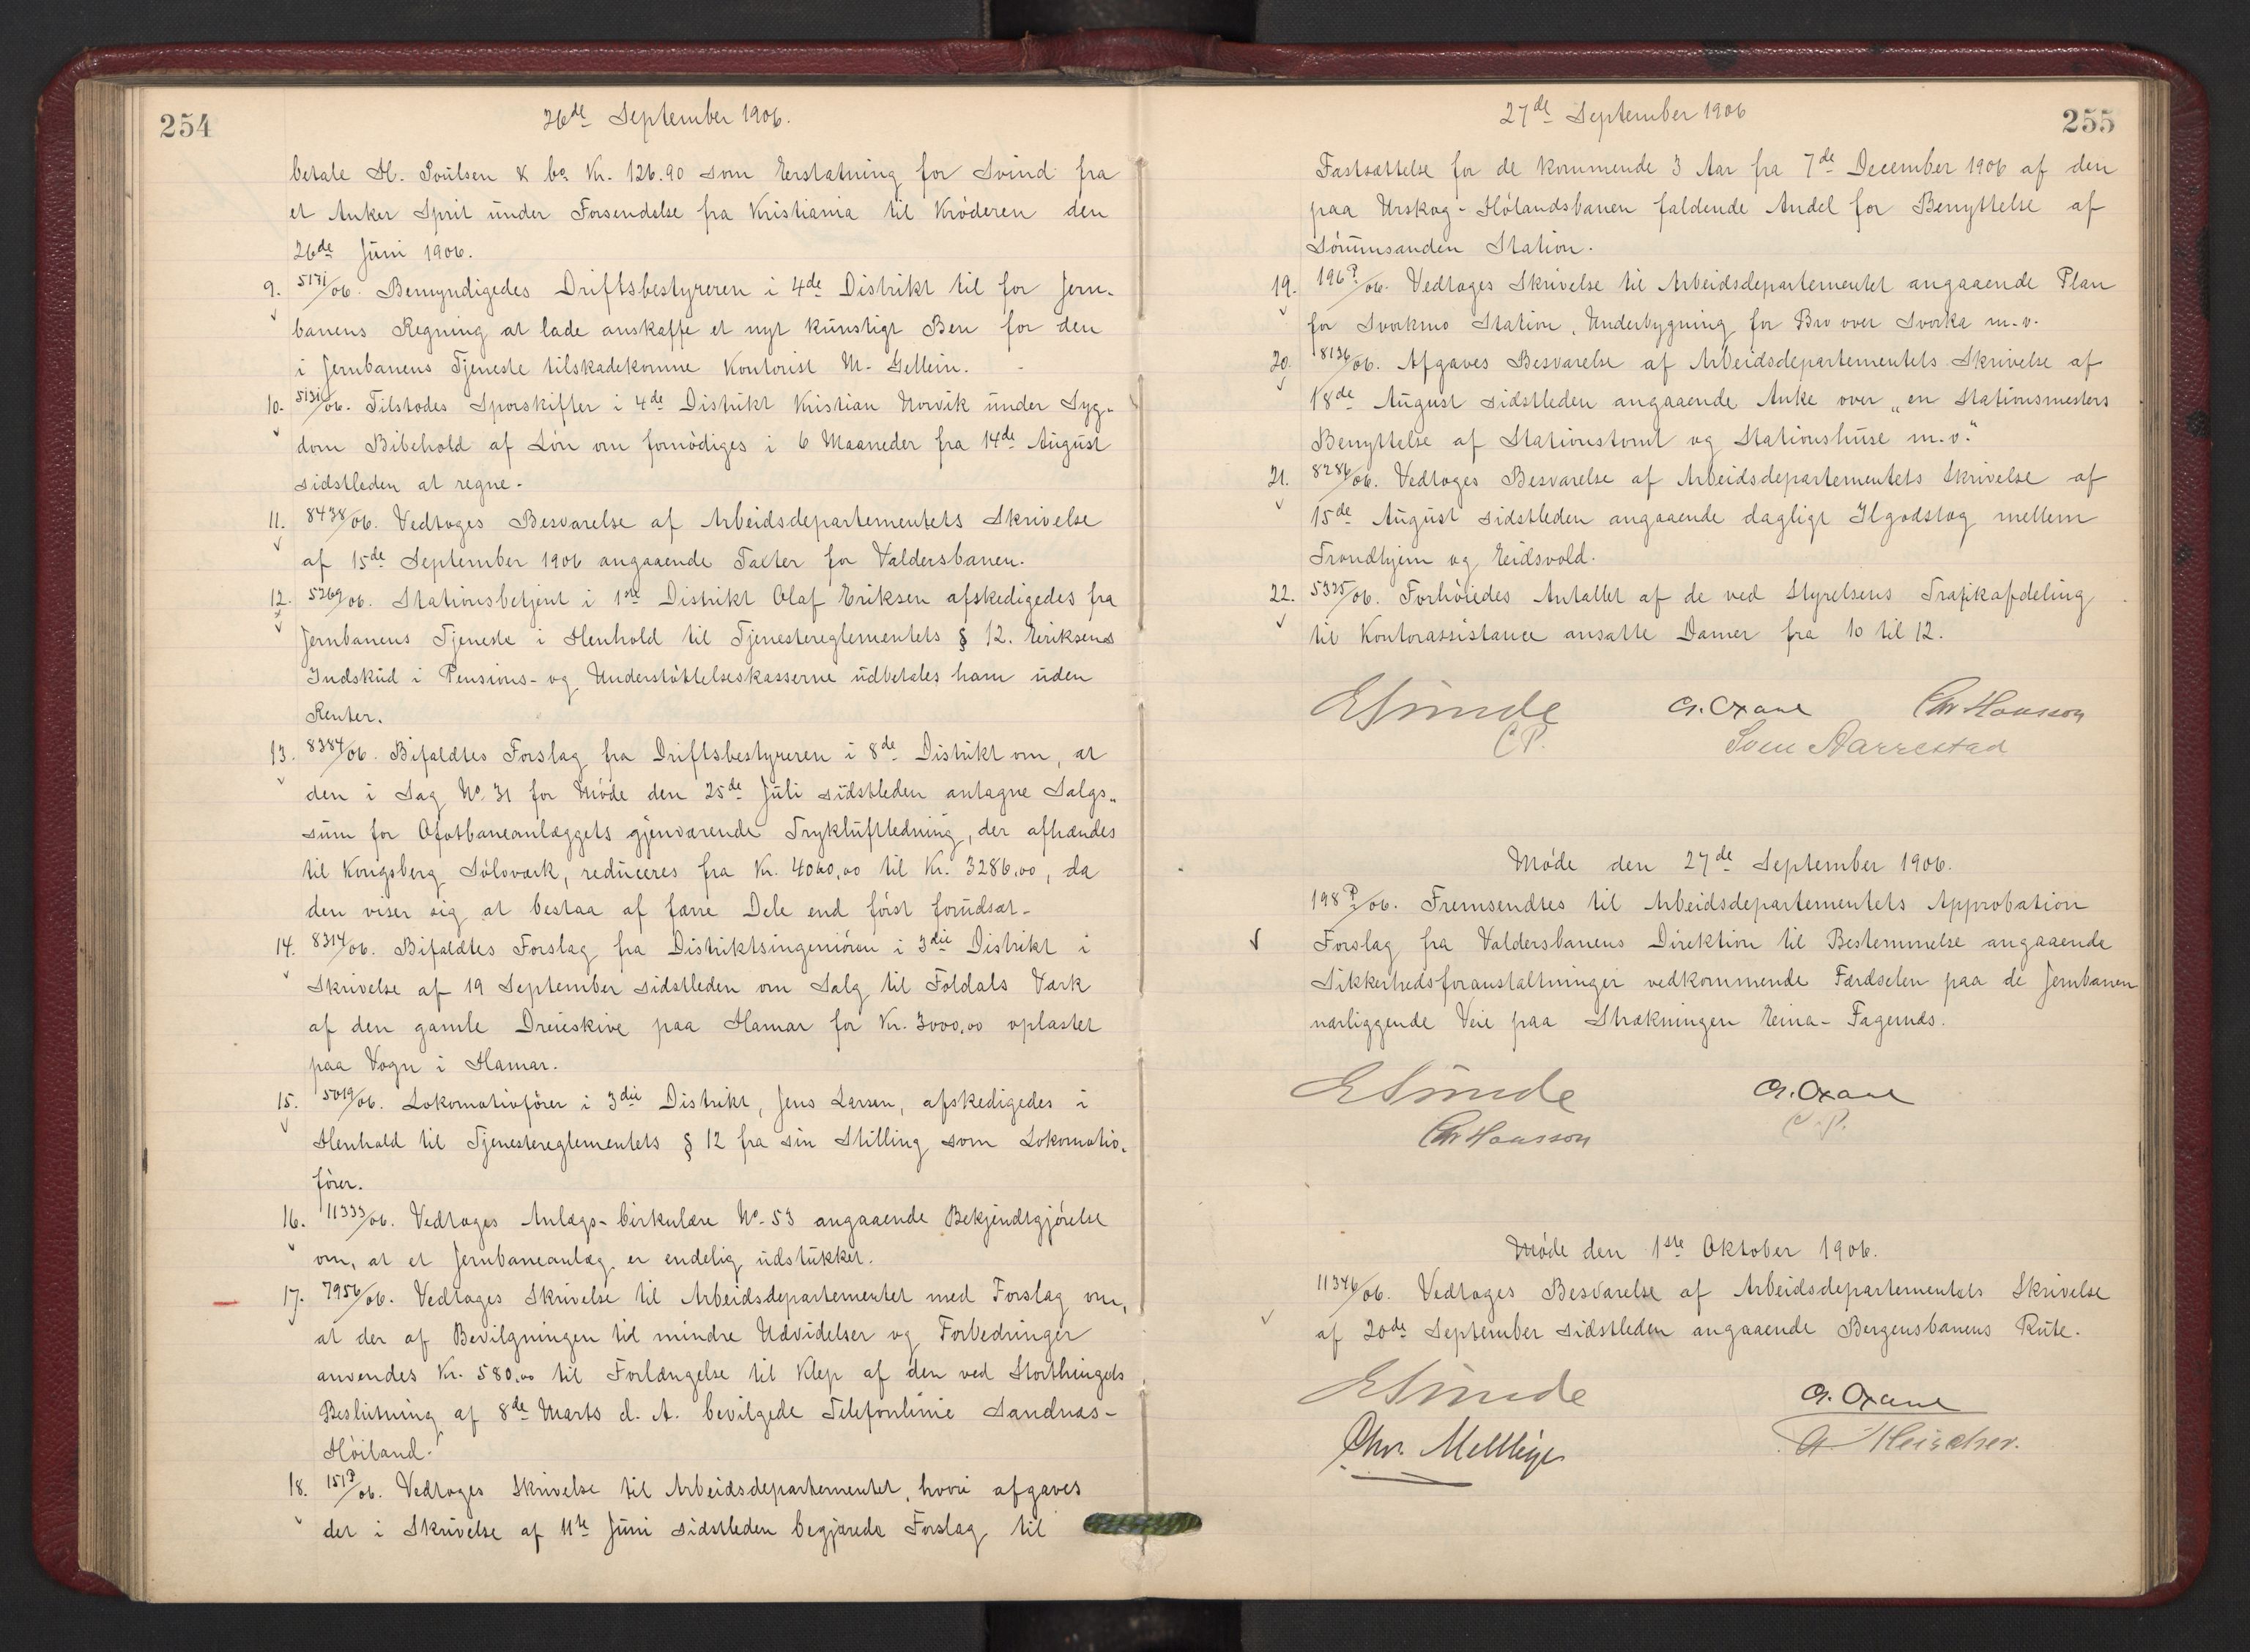 254
26de September 1906.
betale H. Poulsen & Co Kr. 126.90 som Erstatning for Svind fra
et Anker Sprit under Forsendelse fra Kristiania til Krøderen den
26de Juni 1906.
9. 5171/06. Bemyndigedes Driftsbestyreren i 4de Distrikt til for Jern-
banens Regning at lade anskaffe et nyt kunstigt Ben for den
i Jernbanens Tjeneste tilskadekomne Kontorist M. Gellein.
10. 5131/06. Tilstodes Sporskifter i 4de Distrikt Kristian Norvik under Syg-
dom Bibehold af Løn om fornødiges i 6 Maaneder fra 14de August
sidstleden at regne.
11. 8438/06. Vedtoges Besvarelse af Arbeidsdepartementets Skrivelse
af 15de September 1906 angaaende Taxter for Valdersbanen.
12. 5269/06. Stationsbetjent i 1ste Distrikt Olaf Eriksen afskedigedes fra
Jernbanens Tjeneste i Henhold til Tjenestereglementets § 12. Eriksens
Indskud i Pensions- og Understøttelseskasserne udbetales ham uden
Renter.
13. 8384/06. Bifaldtes Forslag fra Driftsbestyreren i 8de Distrikt om, at
den i Sag No. 31 for Møde den 25de Juli sidstleden antagne Salgs-
sum for Ofotbaneanlæggets gjenværende Trykluftledning, der afhændes
til Kongsberg Sølvværk, reduceres fra Kr. 4060,00 til Kr. 3286,00, da
den viser sig at bestaa af færre Dele end først forudsat.
14. 8314/06. Bifaldtes Forslag fra Distriktsingeniøren i 3die Distrikt i
Skrivelse af 19 September sidstleden om Salg til Foldals Værk
af den gamle Dreieskive paa Hamar for Kr. 3000,00 oplastet
paa Vogn i Hamar.
15. 5019/06. Lokomotivfører i 3die Distrikt, Jens Larsen, afskedigedes i
Henhold til Tjenestereglementets § 12 fra sin Stilling som Lokomotiv-
fører.
16. 11333/06. Vedtoges Anlægs-Cirkulære No. 53 angaaende Bekjendtgjørelse
om, at et Jernbaneanlæg er endelig udstukket.
17. 7956/06. Vedtoges Skrivelse til Arbeidsdepartementet med Forslag om,
at der af Bevilgningen til mindre Udvidelser og Forbedringer
anvendes Kr. 580,00 til Forlængelse til Klep af den ved Storthingets
Beslutning af 8de Marts d. A. bevilgede Telefonlinie Sandnæs-
Høiland.
18. 151P/06. Vedtoges Skrivelse til Arbeidsdepartementet, hvori afgaves
det i Skrivelse af 11te Juni sidstleden begjærede Forslag til
27de September 1906
255
Fastsættelse for de kommende 3 Aar fra 7de December 1906 af den
paa Urskog-Hølandsbanen faldende Andel for Benyttelse af
Sørumsanden Station.
19. 196P/06. Vedtoges Skrivelse til Arbeidsdepartementet angaaende Plan
for Svorkmo Station, Underbygning for Bro over Svorka m.v.
20. 8136/06. Afgaves Besvarelse af Arbeidsdepartementets Skrivelse af
18de August sidstleden angaaende Anke over „en Stationsmesters
Benyttelse af Stationstomt og Stationshuse m.v."
21. 8286/06. Vedtoges Besvarelse af Arbeidsdepartementets Skrivelse af
15de August sidstleden angaaende dagligt Ilgodstog mellem
Trondhjem og Eidsvold.
22. 5325/06. Forhøiedes Antallet af de ved Styrelsens Trafikafdeling
til Kontorassistance ansatte Damer fra 10 til 12.
E Sunde A. Oxaal Chr Hansson
C.P. Sven Aarrestad
Møde den 27de September 1906.
198P/06. Fremsendtes til Arbeidsdepartementets Approbation
Forslag fra Valdersbanens Direktion til Bestemmelse angaaende
Sikkerhedsforanstaltninger vedkommende Færdselen paa de Jernbanen
nærliggende Veie paa Strækningen Eina-Fagernæs.
E Sunde A. Oxaal
Chr Hansson C.P.
Møde den 1ste Oktober 1906.
11346/06. Vedtoges Besvarelse af Arbeidsdepartementets Skrivelse
af 20de September sidstleden angaaende Bergensbanens Rute.
E Sunde A. Oxaal
Chr. Mellbye A Fleischer.